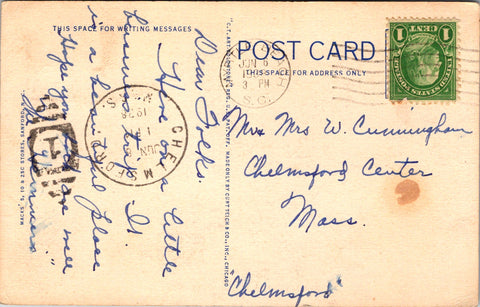 THIS SPACE FOR WRITING MESSAGES
Dear Folks.
Here on a little
business trip. It
is a beautiful place
Hope you are well
POST CARD
THIS SPACE FOR ADDRESS ONLY
JUN 6
3 PM
S.C.
1 UNITED STATES POSTAGE 1
CENT
Mr & Mrs W. Cunningham
Chelmsford Center
Mass.
"Chelmsford"
CHELMSFORD
JUN
1 PM
1938
MASS.
1
"C.T. ART-COLORTONE" REG. U.S. PAT. OFF. MADE ONLY BY CURT TEICH & CO., INC., CHICAGO
MACK'S 5, 10 & 25C STORES, SANFORD,